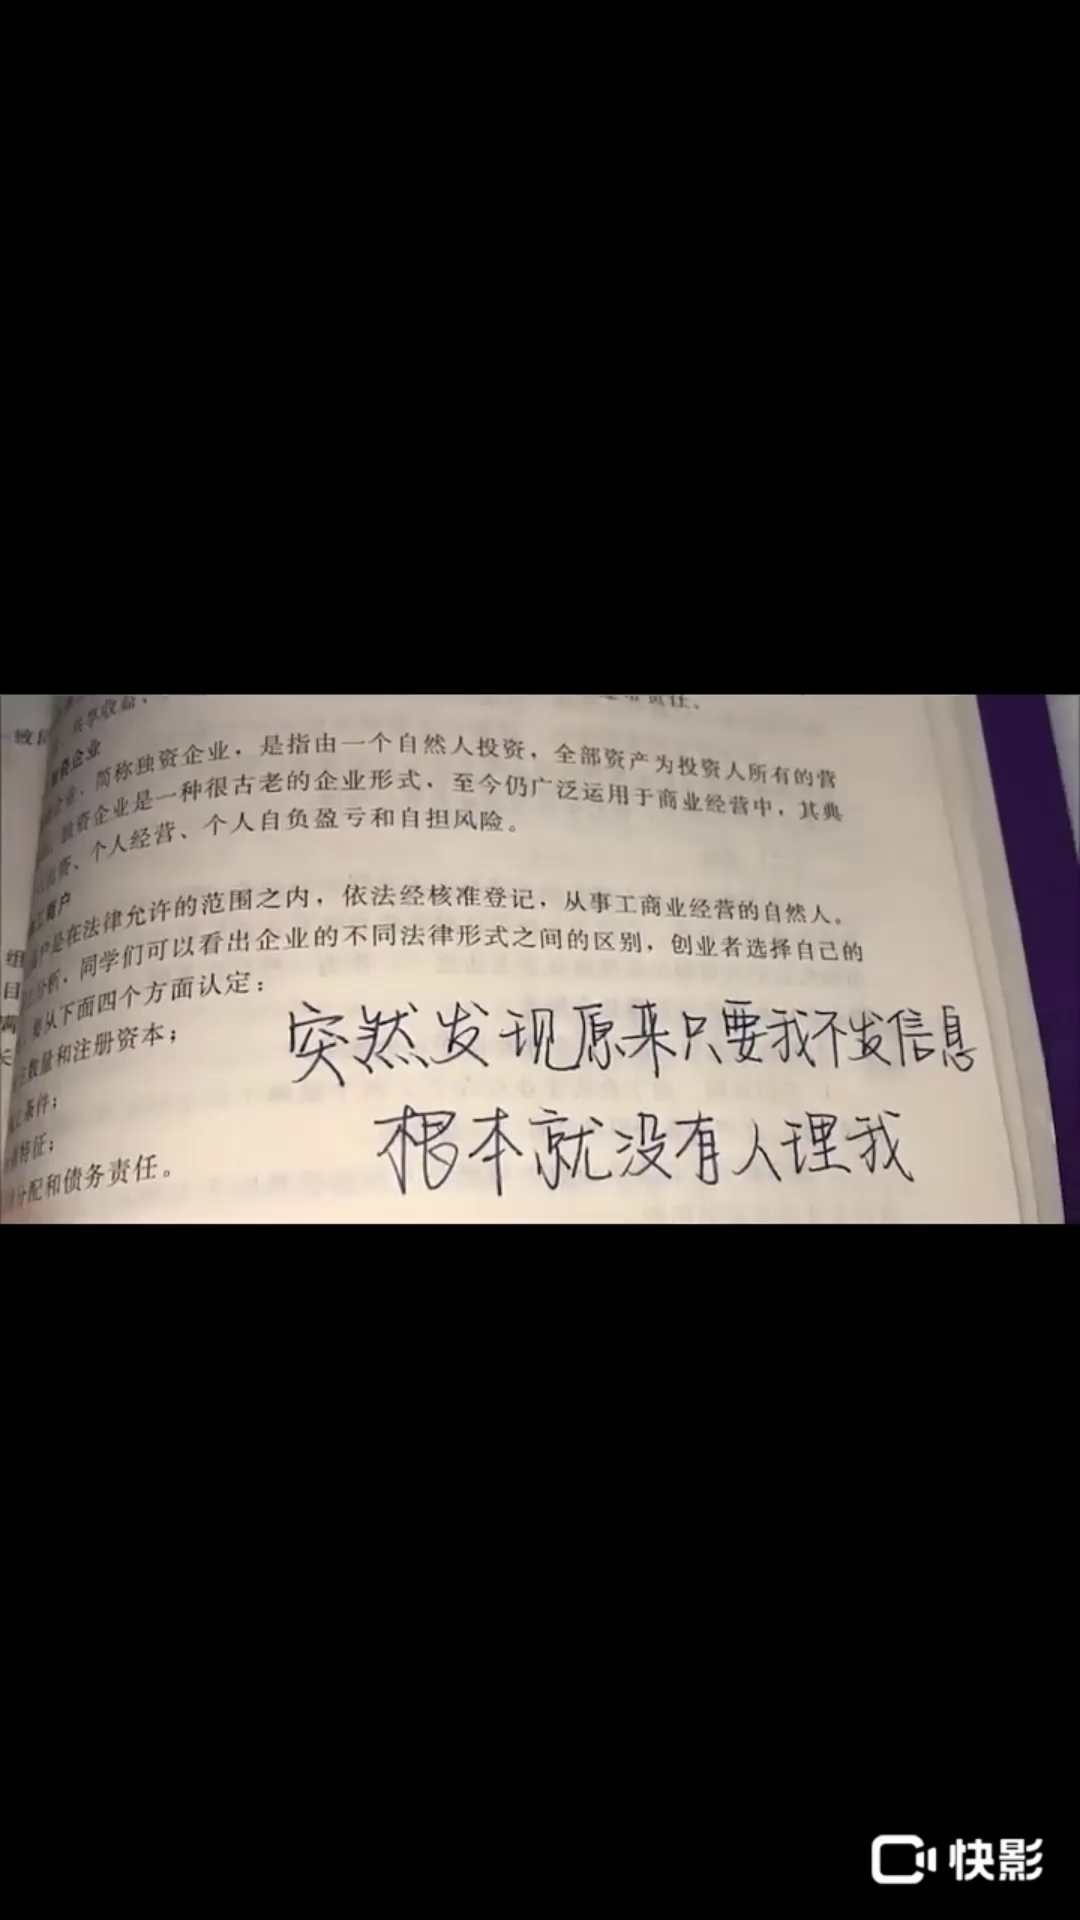 共享收益、
资企业
简称独资企业，是指由一个自然人投资，全部资产为投资人所有的营
独资企业是一种很古老的企业形式，至今仍广泛运用于商业经营中，其典
资、个人经营、个人自负盈亏和自担风险。
商户
户是在法律允许的范围之内，依法经核准登记，从事工商业经营的自然人。
分析，同学们可以看出企业的不同法律形式之间的区别，创业者选择自己的
要从下面四个方面认定：
数量和注册资本；
条件；
特征；
分配和债务责任。
组
目
满
长
突然发现原来只要我不发信息
根本就没有人理我
快影